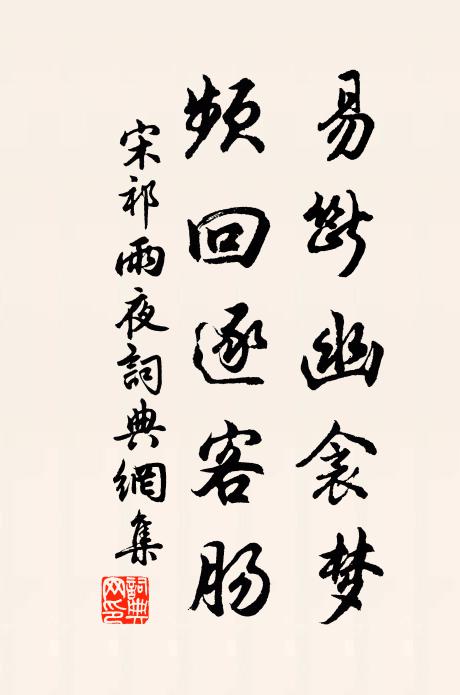 易断幽衾梦
频回逐客肠
宋祁雨夜詞典網集
詞典网印